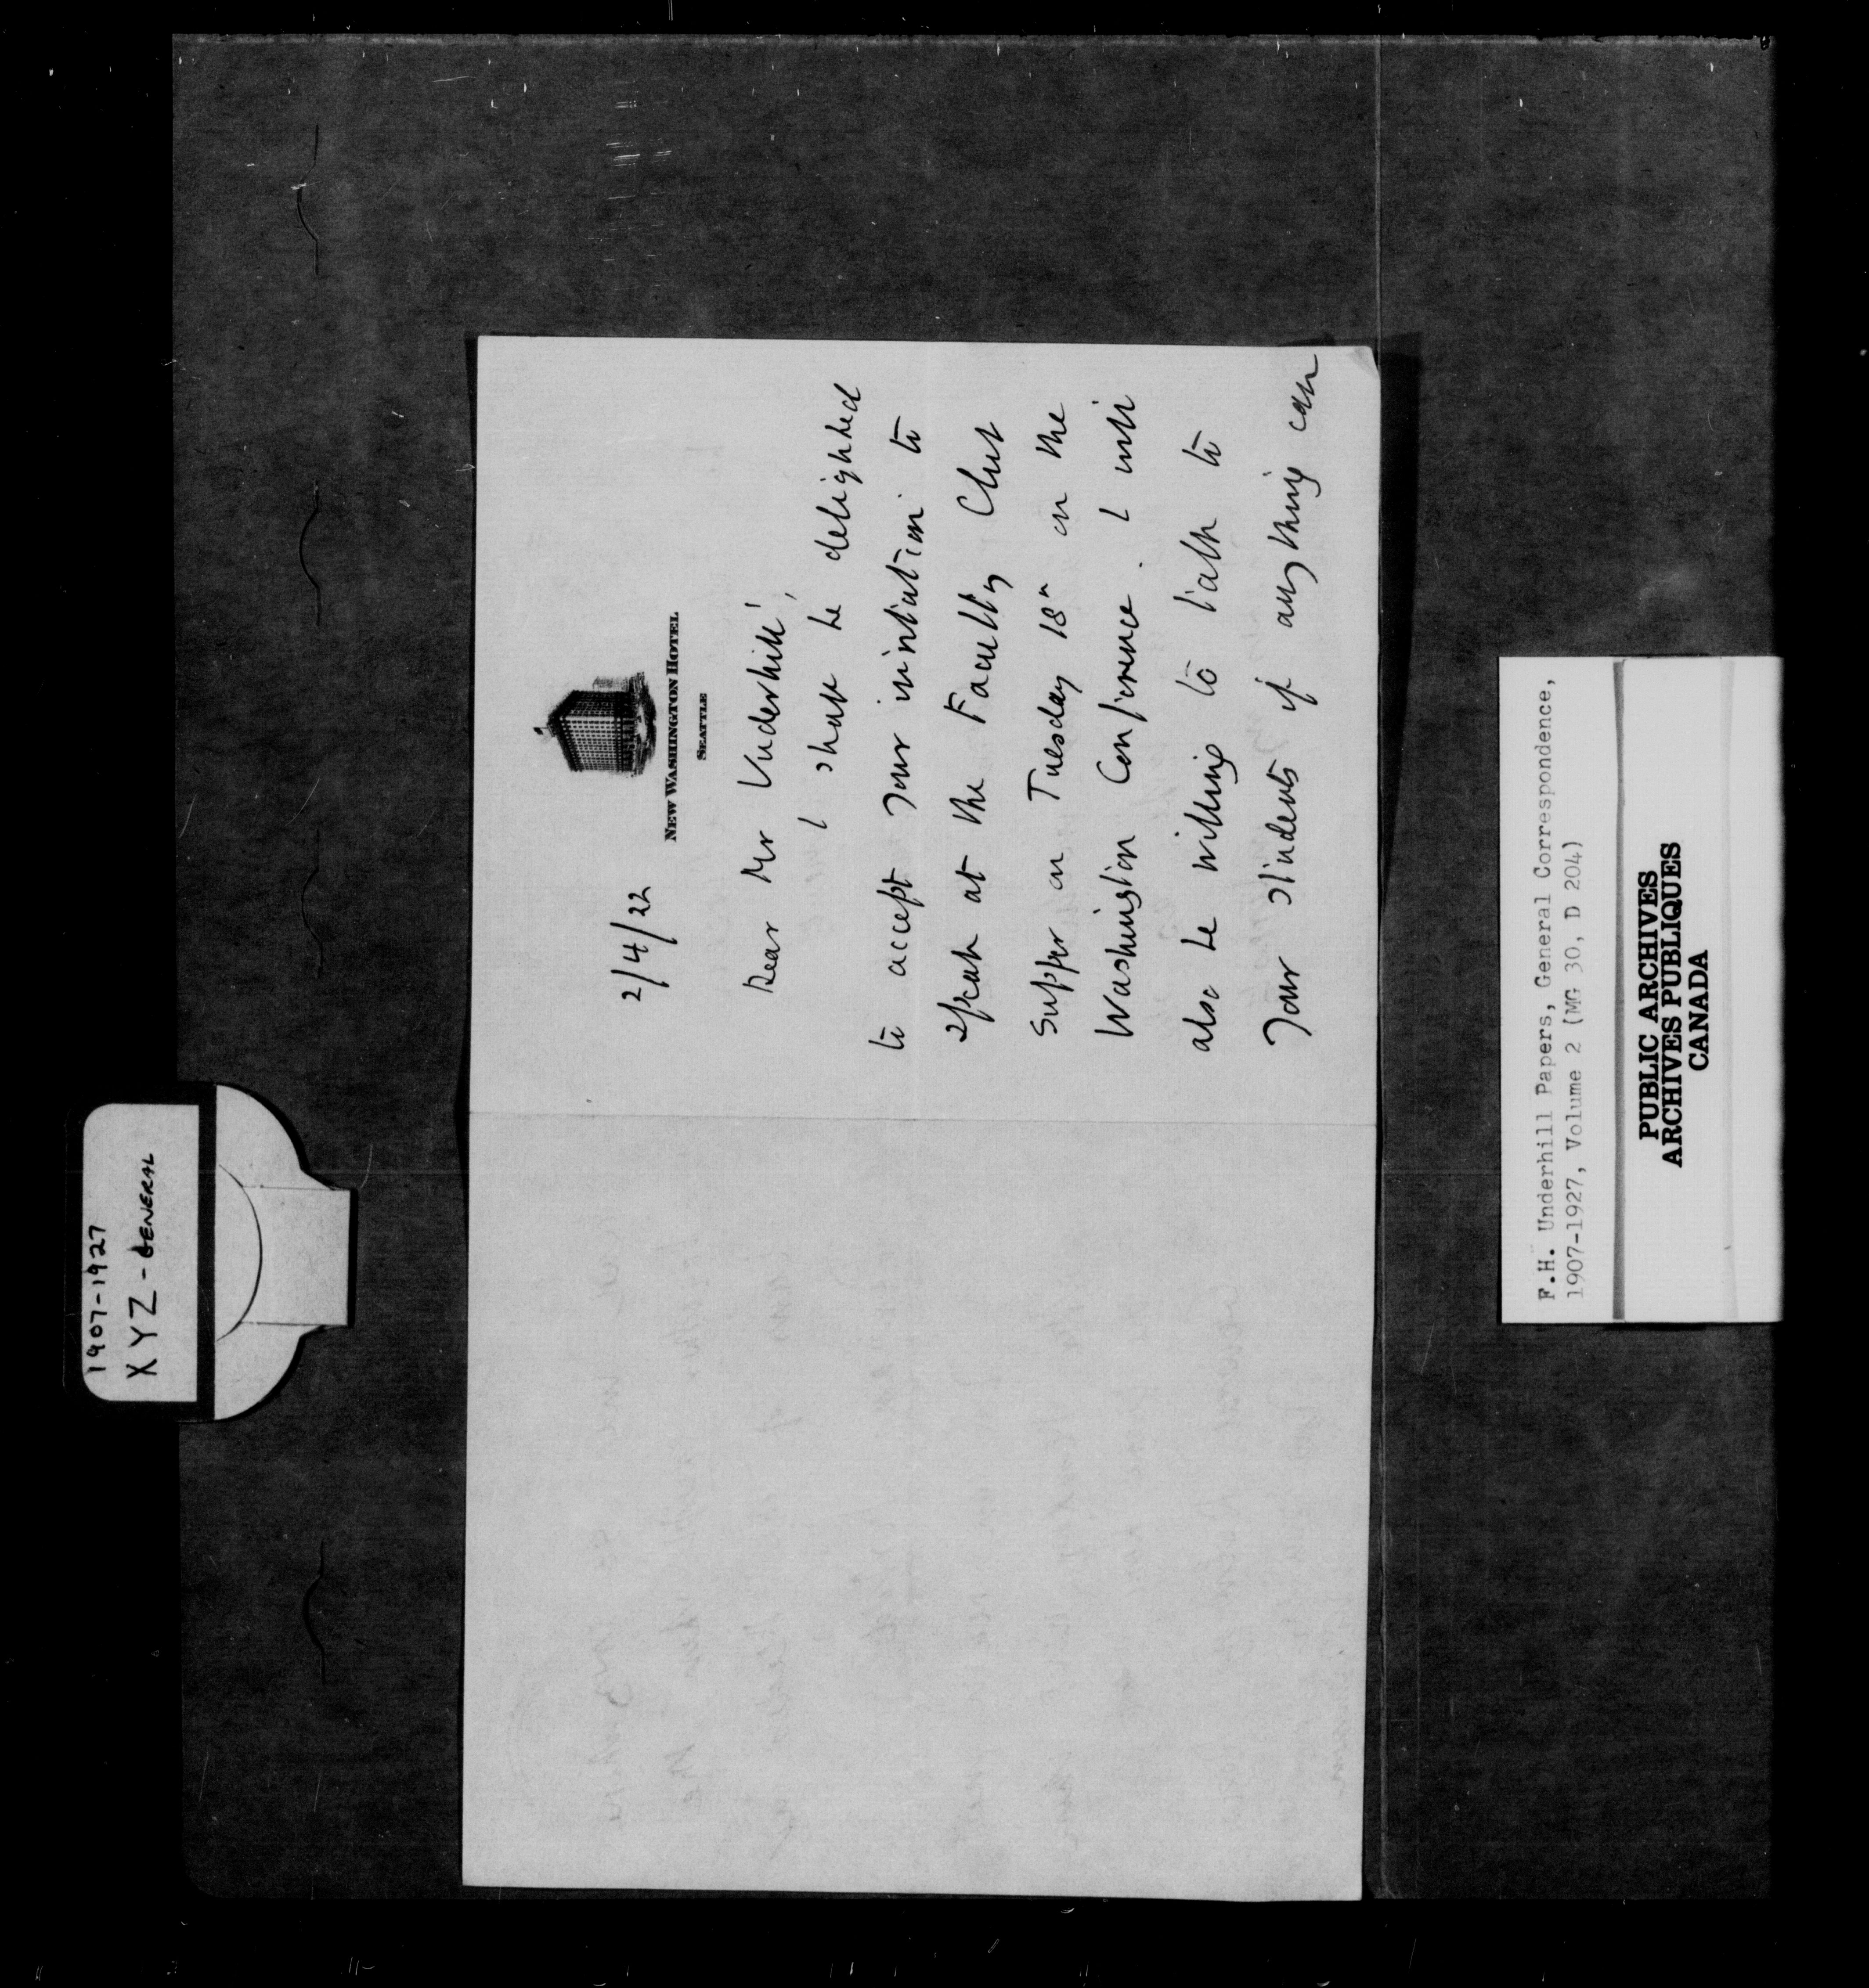 1907-1927
XYZ - GENERAL
2/4/22
NEW WASHINGTON HOTEL
SEATTLE
Dear Mr Underhill,
I shall be delighted
to accept your invitation to
speak at the Faculty Club
Supper on Tuesday 18th on the
Washington Conference. I will
also be willing to talk to
your students if anything can
F.H. Underhill Papers, General Correspondence,
1907-1927, Volume 2 (MG 30, D 204)
PUBLIC ARCHIVES
ARCHIVES PUBLIQUES
CANADA